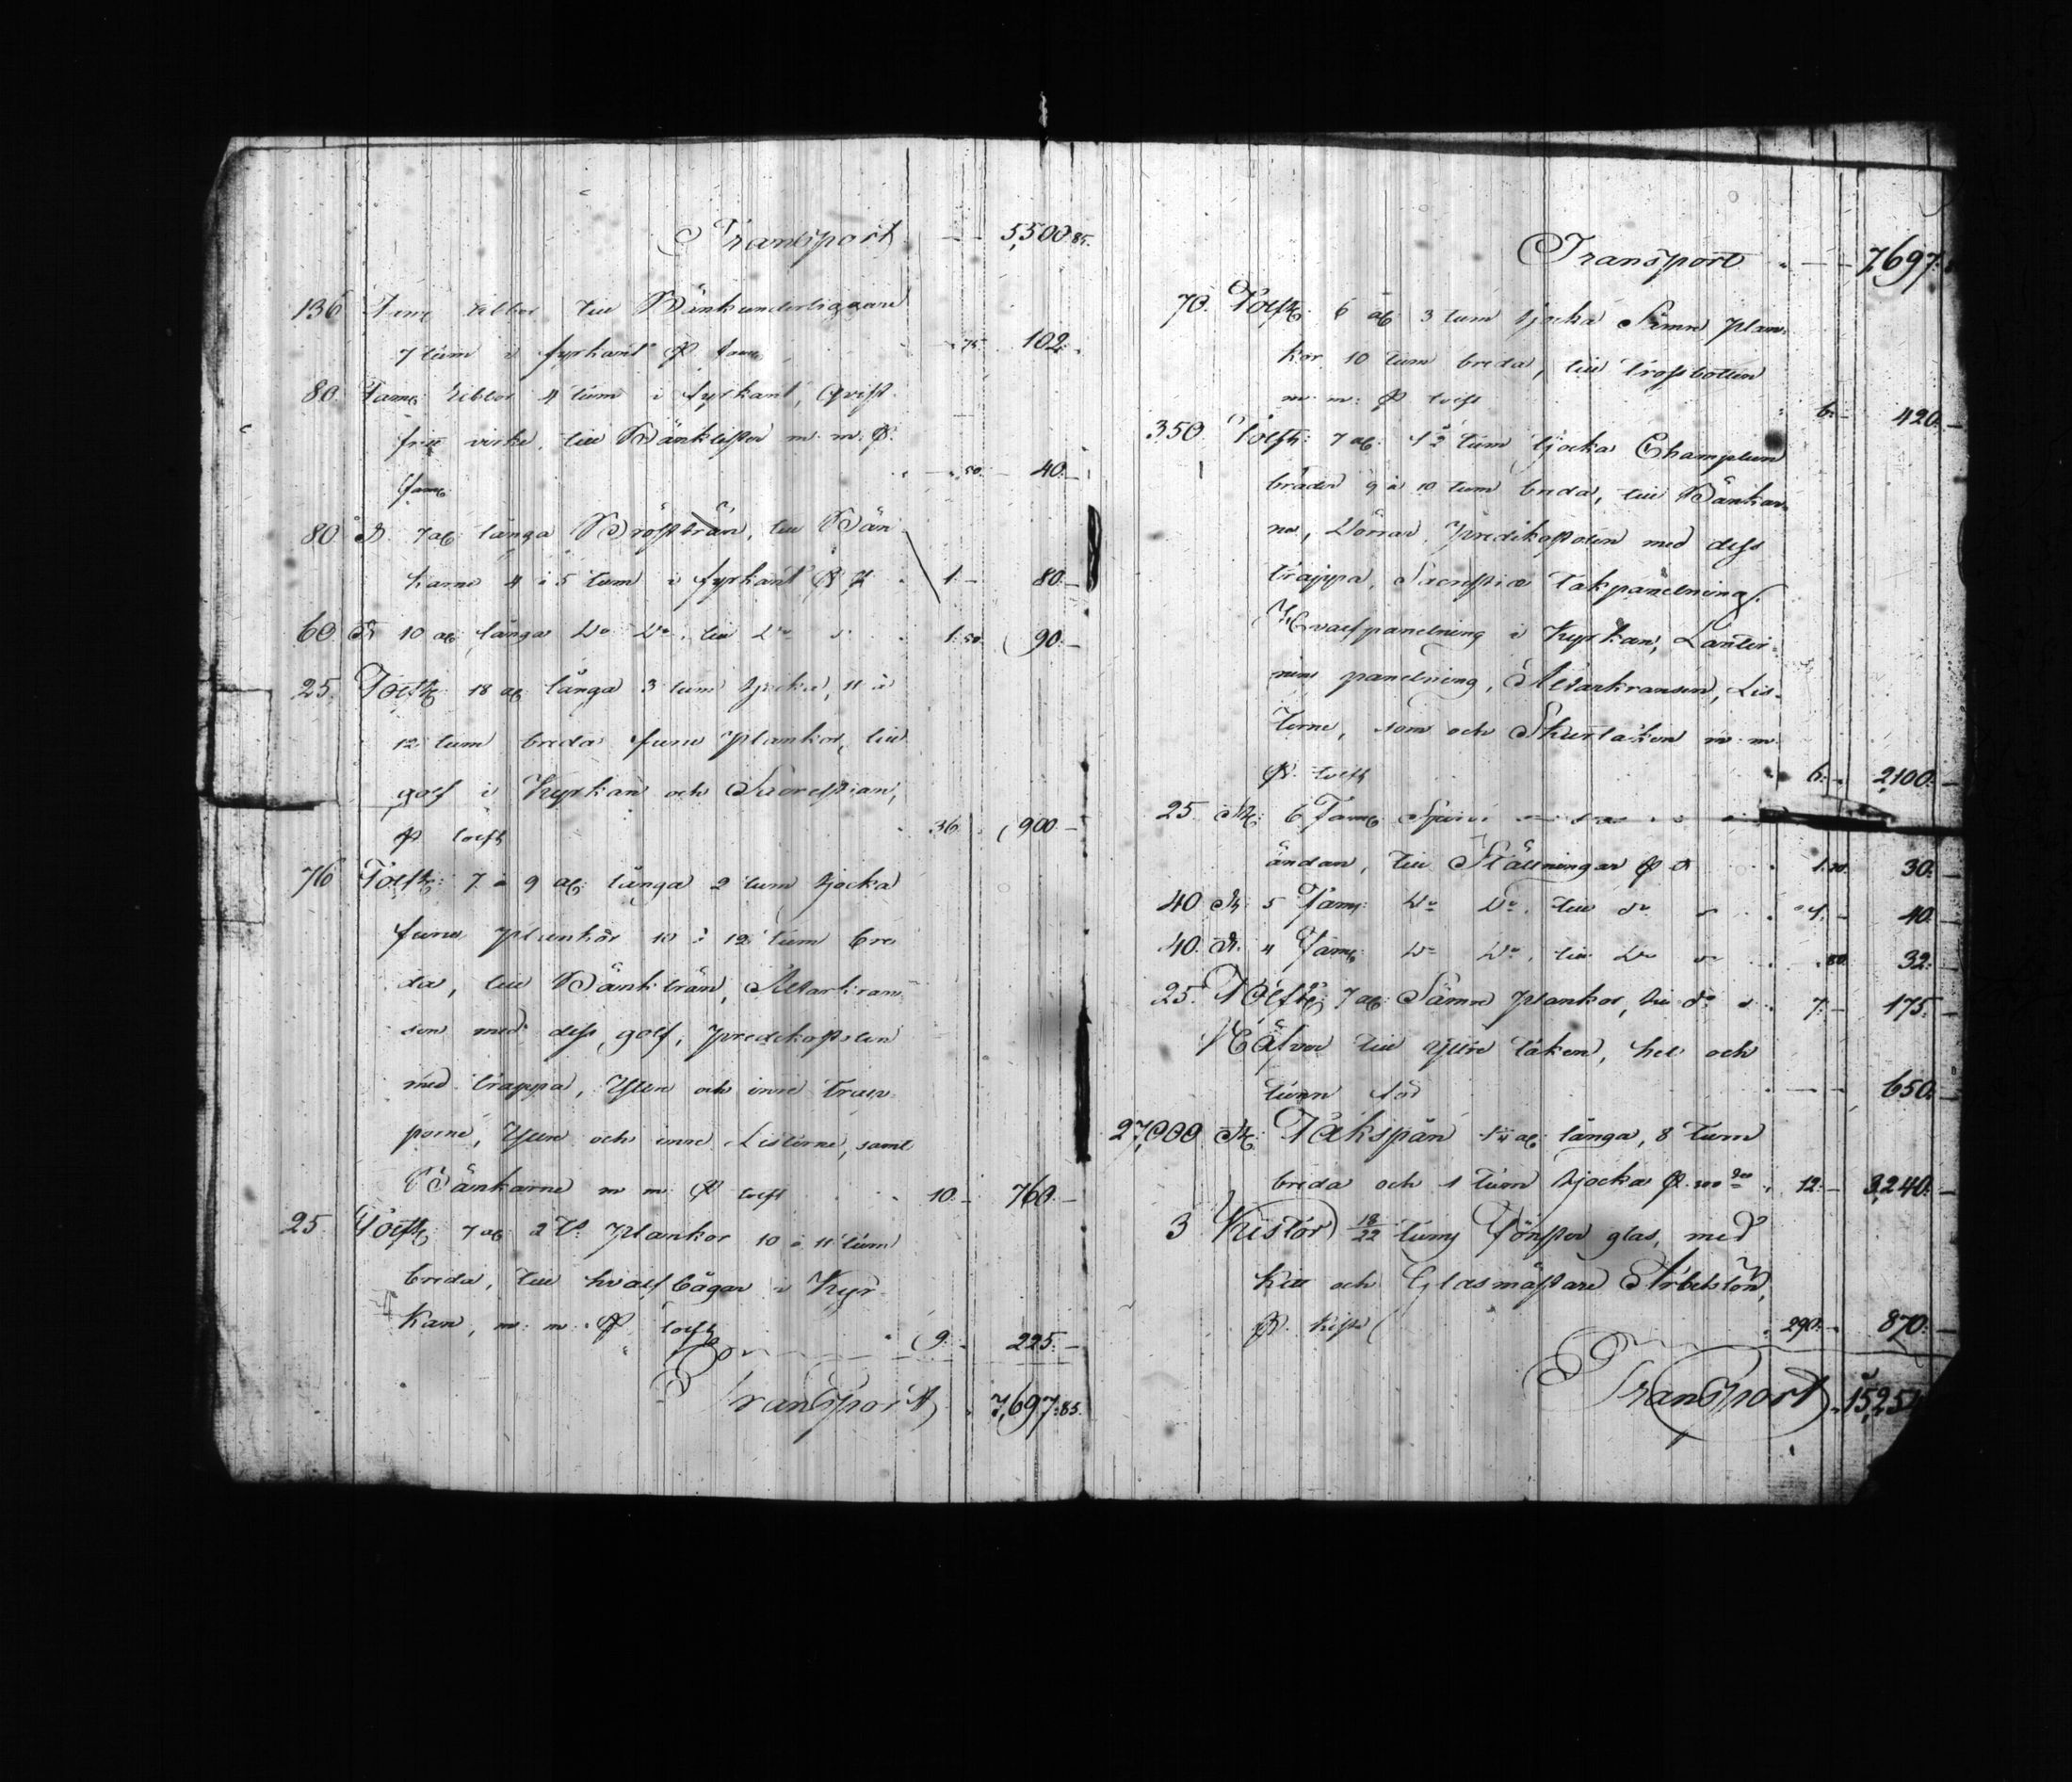 Transport — 5,500.85.
136 Famr Ribbor till Bänkunderliggare
7 tum i fyrkant pr famn . 75. 102: -
80. Famr Ribbor 4 tum i fyrkant, Qvist
fritt virke, till Bänklister m. m. pr
famn . 50. 40. -
80 St 7 al: långa Bröstträn, till Bän
karne 4 à 5 tum i fyrkant pr st 1. - 80. -
60 St 10 al: långa Do Do, till Do 1.50. 90. -
25. Tolft: 18 al: långa 3 tum tjocka, 11 à
12 tum breda furu plankor, till
golf i Kyrkan och Sacrestian,
pr tolft 36. 900. -
76 Tolft: 7 à 9 al: långa 2 tum tjocka
furu plankor 10 à 12 tum bre
da, till Bänkträn, Altarkran
sen med dess golf, predikostolen
med trappa, Yttre och inre trap
porne, Yttre och inre Listerne, samt
Bänkarne m m. pr tolft 10. - 760. -
25. Tolft: 7 al: plankor 10 à 11 tum
breda, till hvalfbågar i Kyr
kan, m. m. pr tolft 9. 225. -
Transport 7,697:85.
Transport . — 7,697:
70. Tolft: 6 al: 3 tum tjocka Sämre plan
kor 10 tum breda, till trossbotten
m. m: pr tolft 6. - 420. -
350 Tolft: 7 al: 1½ tum tjocka
bräder 9 à 10 tum breda, till Bänkar
na, Dörrar, predikostolen med dess
trappa, Sacrestiæ takpanelning,
Hvalfpanelning i Kyrkan, Lanter
nins panelning, Altarkransen, Lis
terne, som och Skurtaken m. m.
pr tolft 6. - 2,100. -
25. St: 6 Famn
ändan, till Ställningar pr st 1.20. 30. -
40 St: 5 Famn: Do Do, till do 1. - 40. -
40. St. 4 Famn: Do Do, till Do . 80. 32. -
25. Tolft: 7 al: Sämre plankor, till do 7. - 175. -
Näfver till Yttre taken, hel och
tunn — 650. -
27,000 St: Takspån 1¼ al: långa, 8 tum
breda och 1 tum tjocka pr 100 12. - 3,240. -
3 Kistor 18/22 tums Fönster glas, med
kitt och Glasmästare Arbetslön,
pr kista 290. - 870. -
Transport 15,254